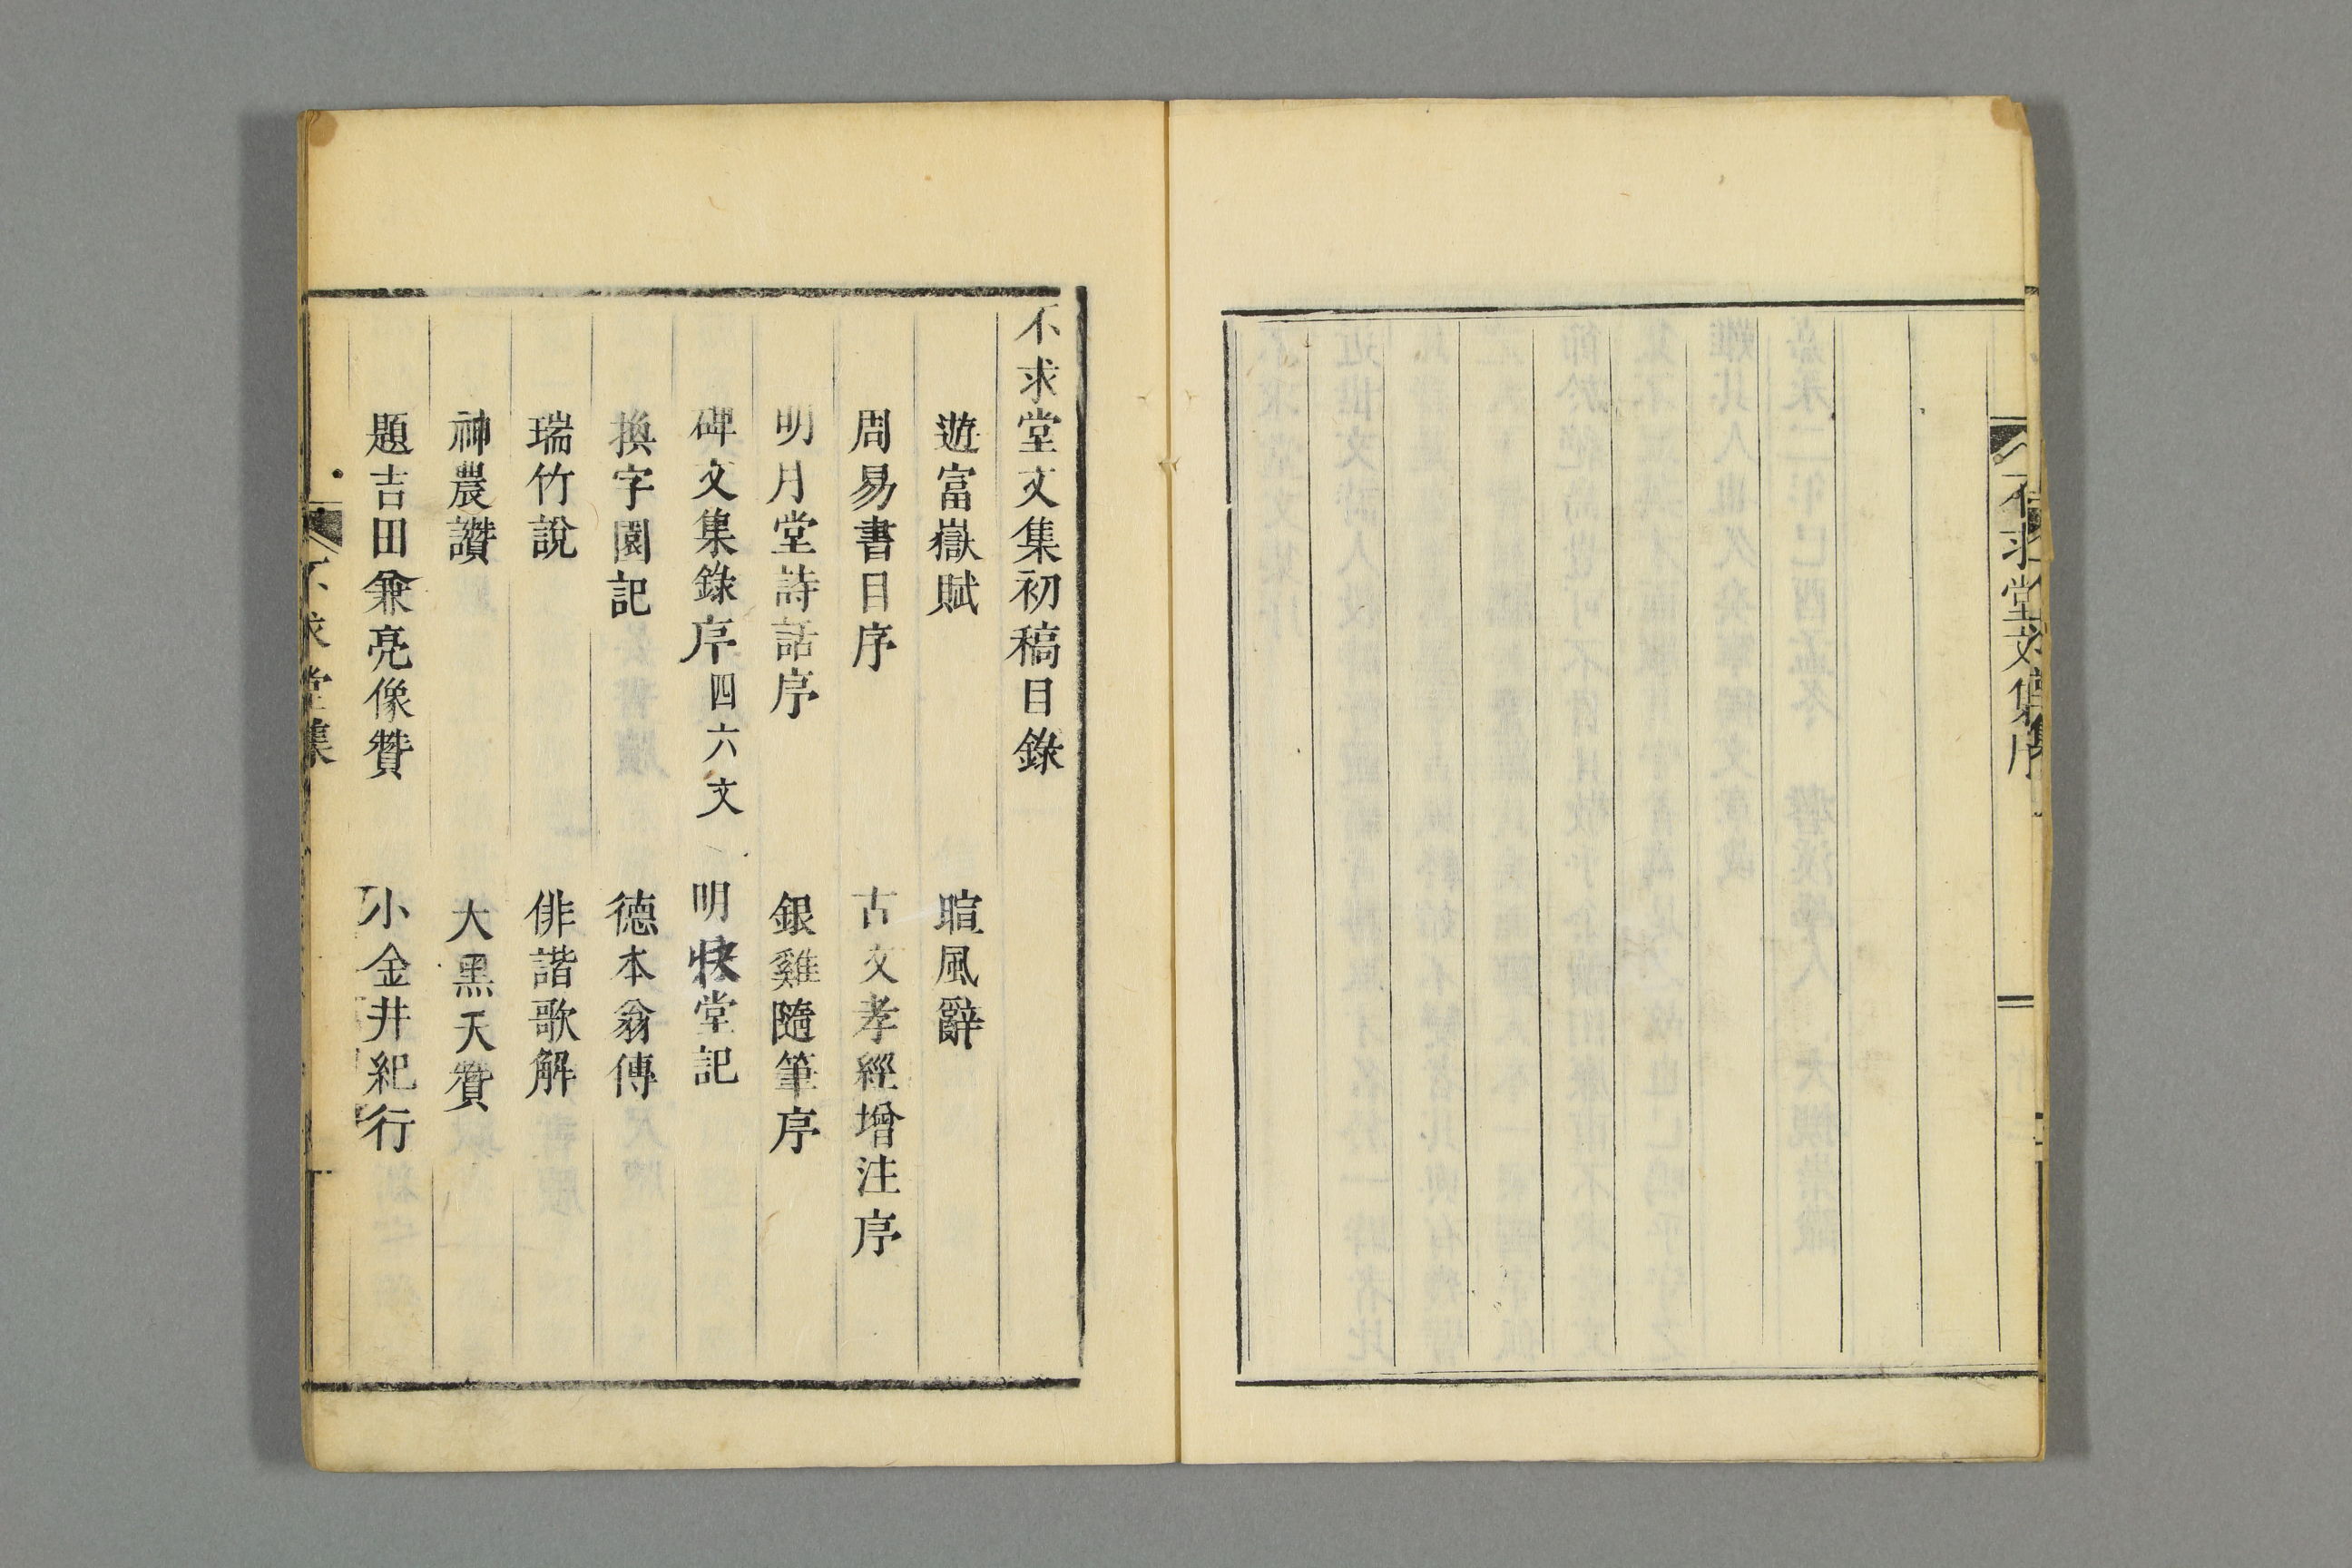 不求堂文集序
不求堂文集初稿目錄
遊富嶽賦 暄風辭
周易書目序 古文孝經增注序
明月堂詩話序 銀雞隨筆序
碑文集錄序四六文 明快堂記
換字園記 德本翁傳
瑞竹說 俳諧歌解
神農讚 大黑天贊
題吉田兼亮像贊 小金井紀行
不求堂集